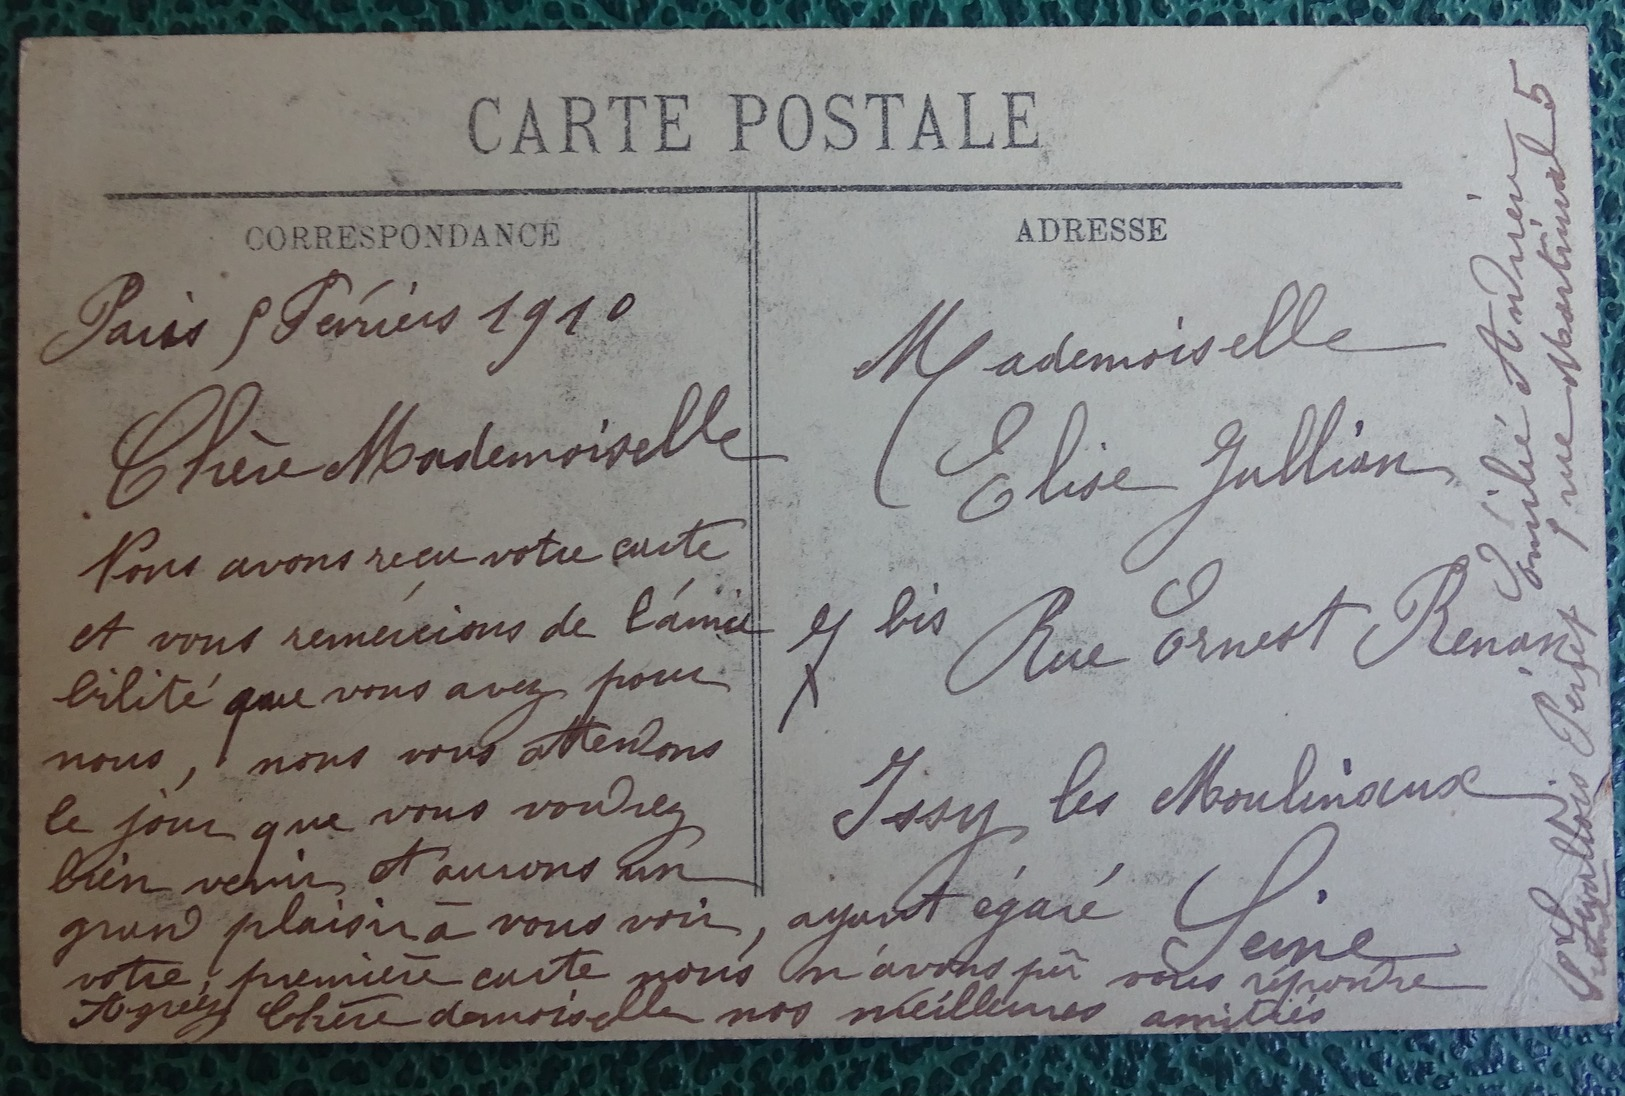 CARTE POSTALE
CORRESPONDANCE
ADRESSE
Paris 5 Févriers 1910
Chère Mademoiselle
Nous avons reçu votre carte
et vous remércions de l'ámia
bilité que vous avez pour
nous, nous vous attendons
le jour que vous voudrez
bien venir et aurons un
grand plaisir à vous voir, ayant égaré
votre première carte nous n'avons pû vous répondre
Agréez Chère demoiselle nos meilleures amitiés
Mademoiselle
Elise Jullian
bis Rue Ernest Renant
Issy les Moulineaux
Seine
Andrieu
5 rue Martinval 5
Levallois Perret